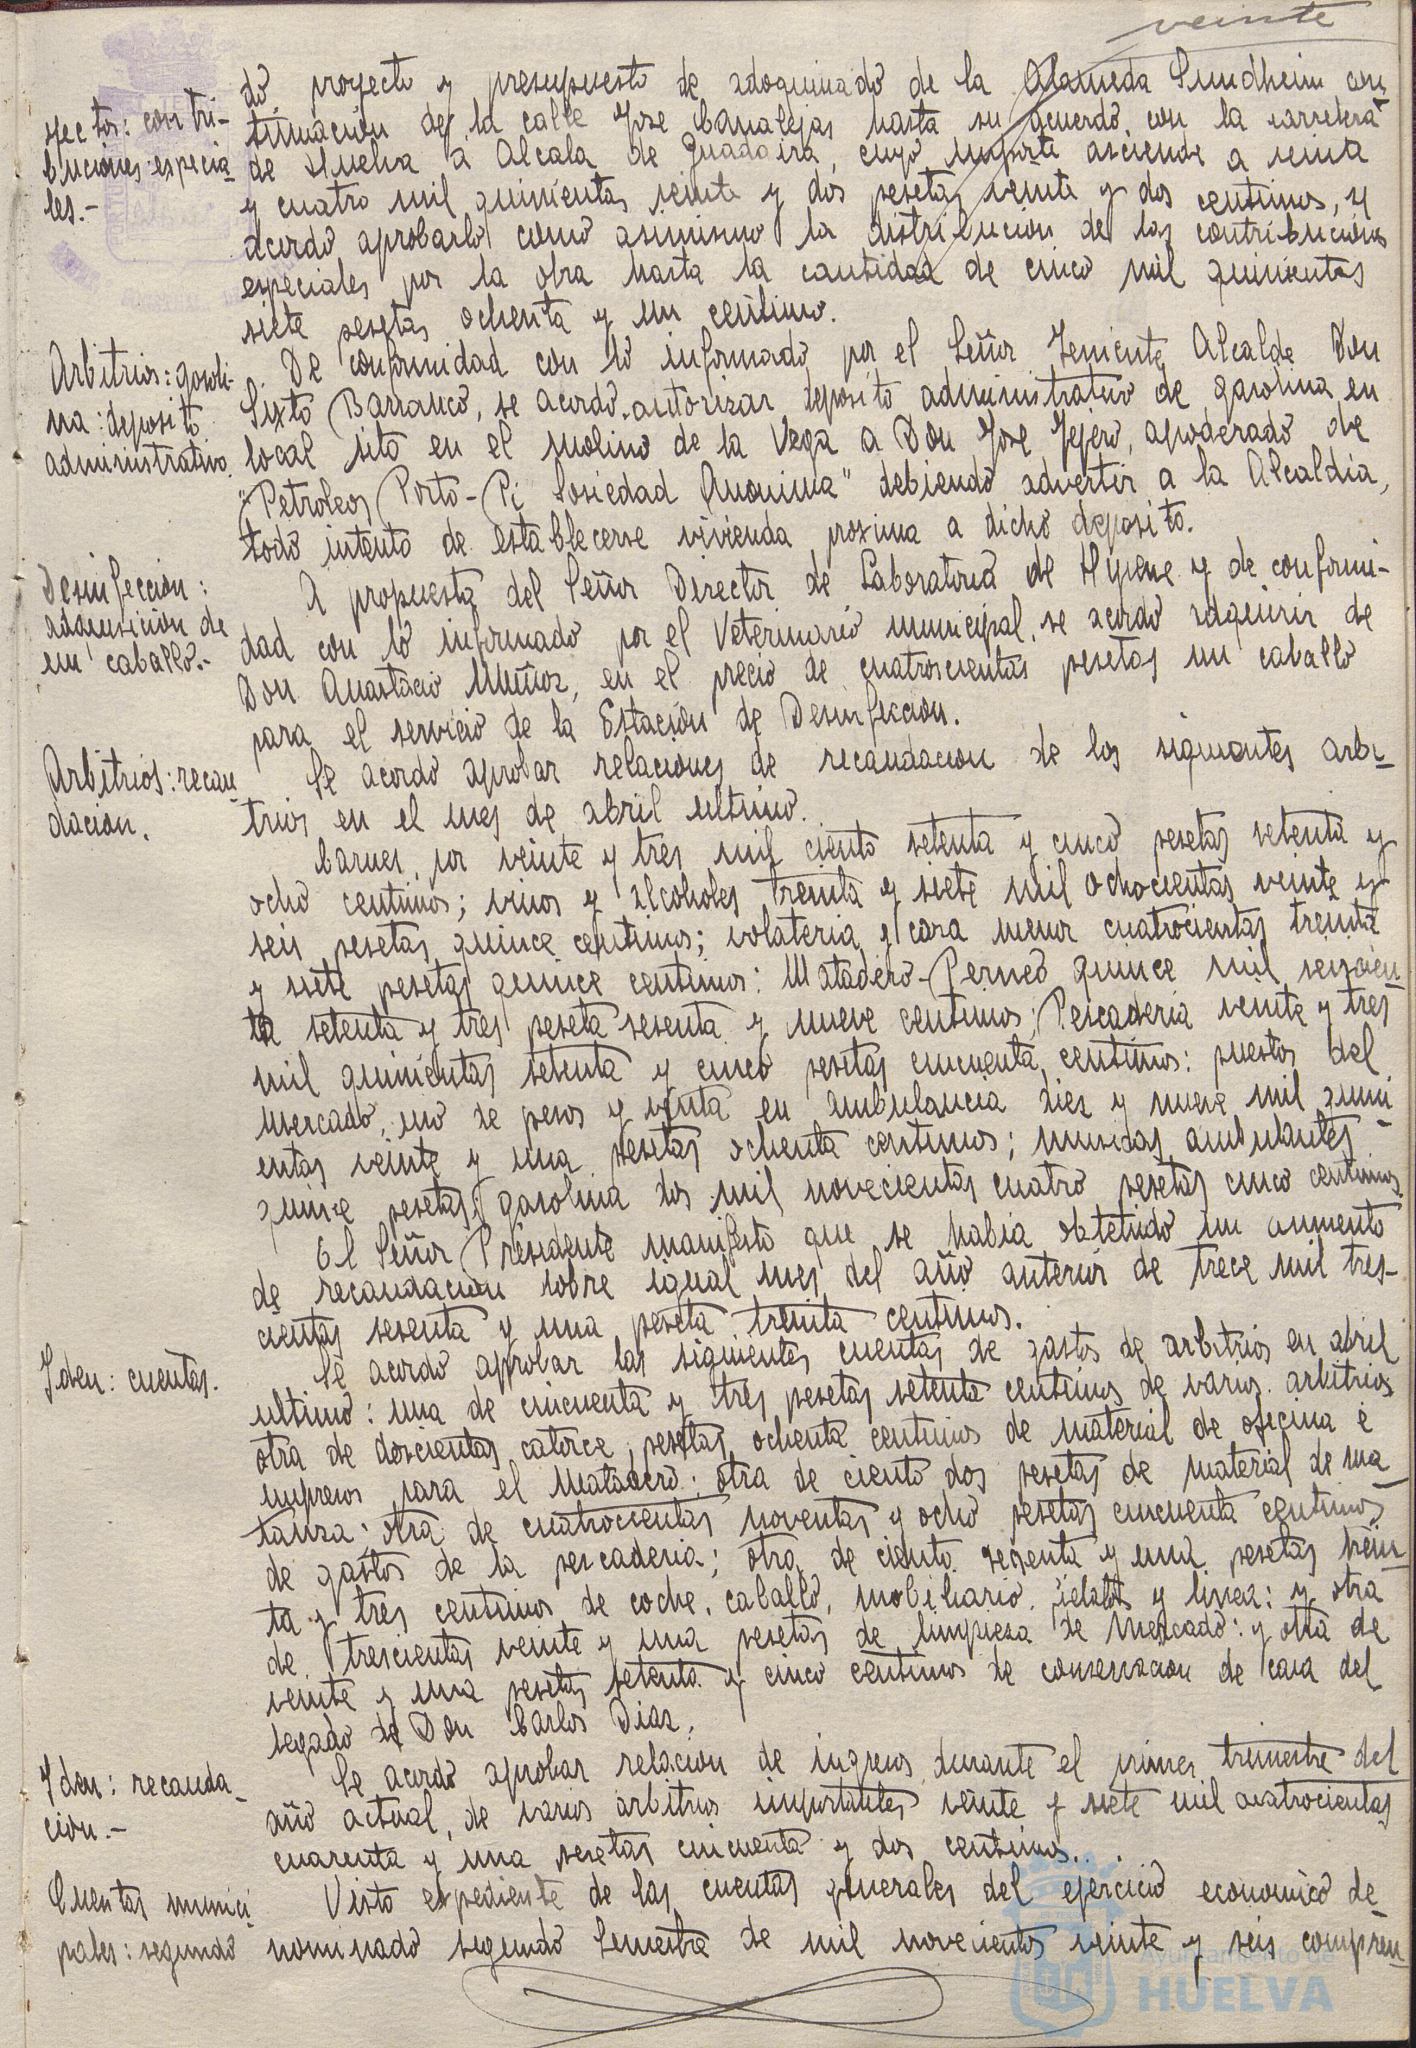 veinte
yectos: contri-
buciones especia-
les.-
do proyecto y presupuesto de adoquinado de la Alameda Sundheim con
tinuación de la calle Jose Canalejas hasta su acuerdo con la carretera
de Huelva a Alcala de Guadaira, cuyo importe asciende a veinte
y cuatro mil quinientas veinte y dos pesetas veinte y dos centimos, y
acordo aprobarlo como asimismo la distribucion de las contribuciones
especiales por la obra hasta la cantidad de cinco mil quinientas
siete pesetas ochenta y un centimo.
Arbitrios: gasoli-
na: deposito
administrativo.
De conformidad con lo informado por el Señor Teniente Alcalde Don
Sixto Barranco, se acordo autorizar deposito administrativo de gasolina en
local sito en el molino de la Vega a Don Jose Tejero, apoderado de
"Petroleos Porto-Pi Sosiedad Anonima" debiendo advertir a la Alcaldia,
todo intento de establecerse vivienda proxima a dicho deposito.
Desinfeccion:
adquisicion de
un caballo.-
A propuesta del Señor Director de Laboratorio de Higiene y de conformi-
dad con lo informado por el Veterinario municipal, se acordo adquirir de
Don Anastacio Muñoz, en el precio de cuatroscientas pesetas un caballo
para el servicio de la Estación de Desinfeccion.
Arbitrios: recau-
dacion.
Se acordo aprobar relaciones de recaudacion de los siguientes arbi-
trios en el mes de abril ultimo.
Carnes, por veinte y tres mil ciento setenta y cinco pesetas setenta y
ocho centimos; vinos y alcoholes treinta y siete mil ochocientas veinte y
seis pesetas quince centimos; volateria y caza menor cuatrocientas treinta
y siete pesetas quince centimos: Matadero-Perneo quince mil
setenta y tres peseta sesenta y nueve centimos; Pescaderia veinte y tres
mil quinientas setenta y cinco pesetas cincuenta centimos: puestos del
mercado, uso de pesos y venta en ambulancia diez y nueve mil quini
entas veinte y una pesetas ochenta centimos; musicas ambulantes
quince pesetas; gasolina dos mil novecientas cuatro pesetas cinco centimos.
El Señor Presidente manifesto que se habia obtenido un aumento
de recaudacion sobre igual mes del año anterior de trece mil tres-
cientas sesenta y una peseta treinta centimos.
Iden: cuentas.
Se acordo aprobar las siguientes cuentas de gastos de arbitrios en abril
ultimo: una de cincuenta y tres pesetas setenta centimos de varios arbitrios
otra de doscientas catorce pesetas ochenta centimos de material de oficina e
impresos para el Matadero: otra de ciento dos pesetas de material de ma
tanza: otra de cuatrocientas noventas y ocho pesetas cincuenta centimos
de gastos de la pescaderia; otra de ciento sesenta y una pesetas trein
ta y tres centimos de coche, caballo, mobiliario, y linea: y otra
de trescientas veinte y una pesetas de limpieza de Mercado: y otra de
veinte y una pesetas setenta y cinco centimos de conservacion de casa del
legado de Don Carlos Diaz.
Iden: recauda-
cion.-
Se acordo aprobar relacion de ingresos durante el primer trimestre del
año actual, de varios arbitrios importantes veinte y siete mil cuatrocientas
cuarenta y una pesetas cincuenta y dos centimos.
Cuentas munici
pales: segundo
Visto expediente de las cuentas generales del ejercicio economico de-
nominado segundo Semestre de mil novecientos veinte y seis compren-
Ayuntamiento de
HUELVA